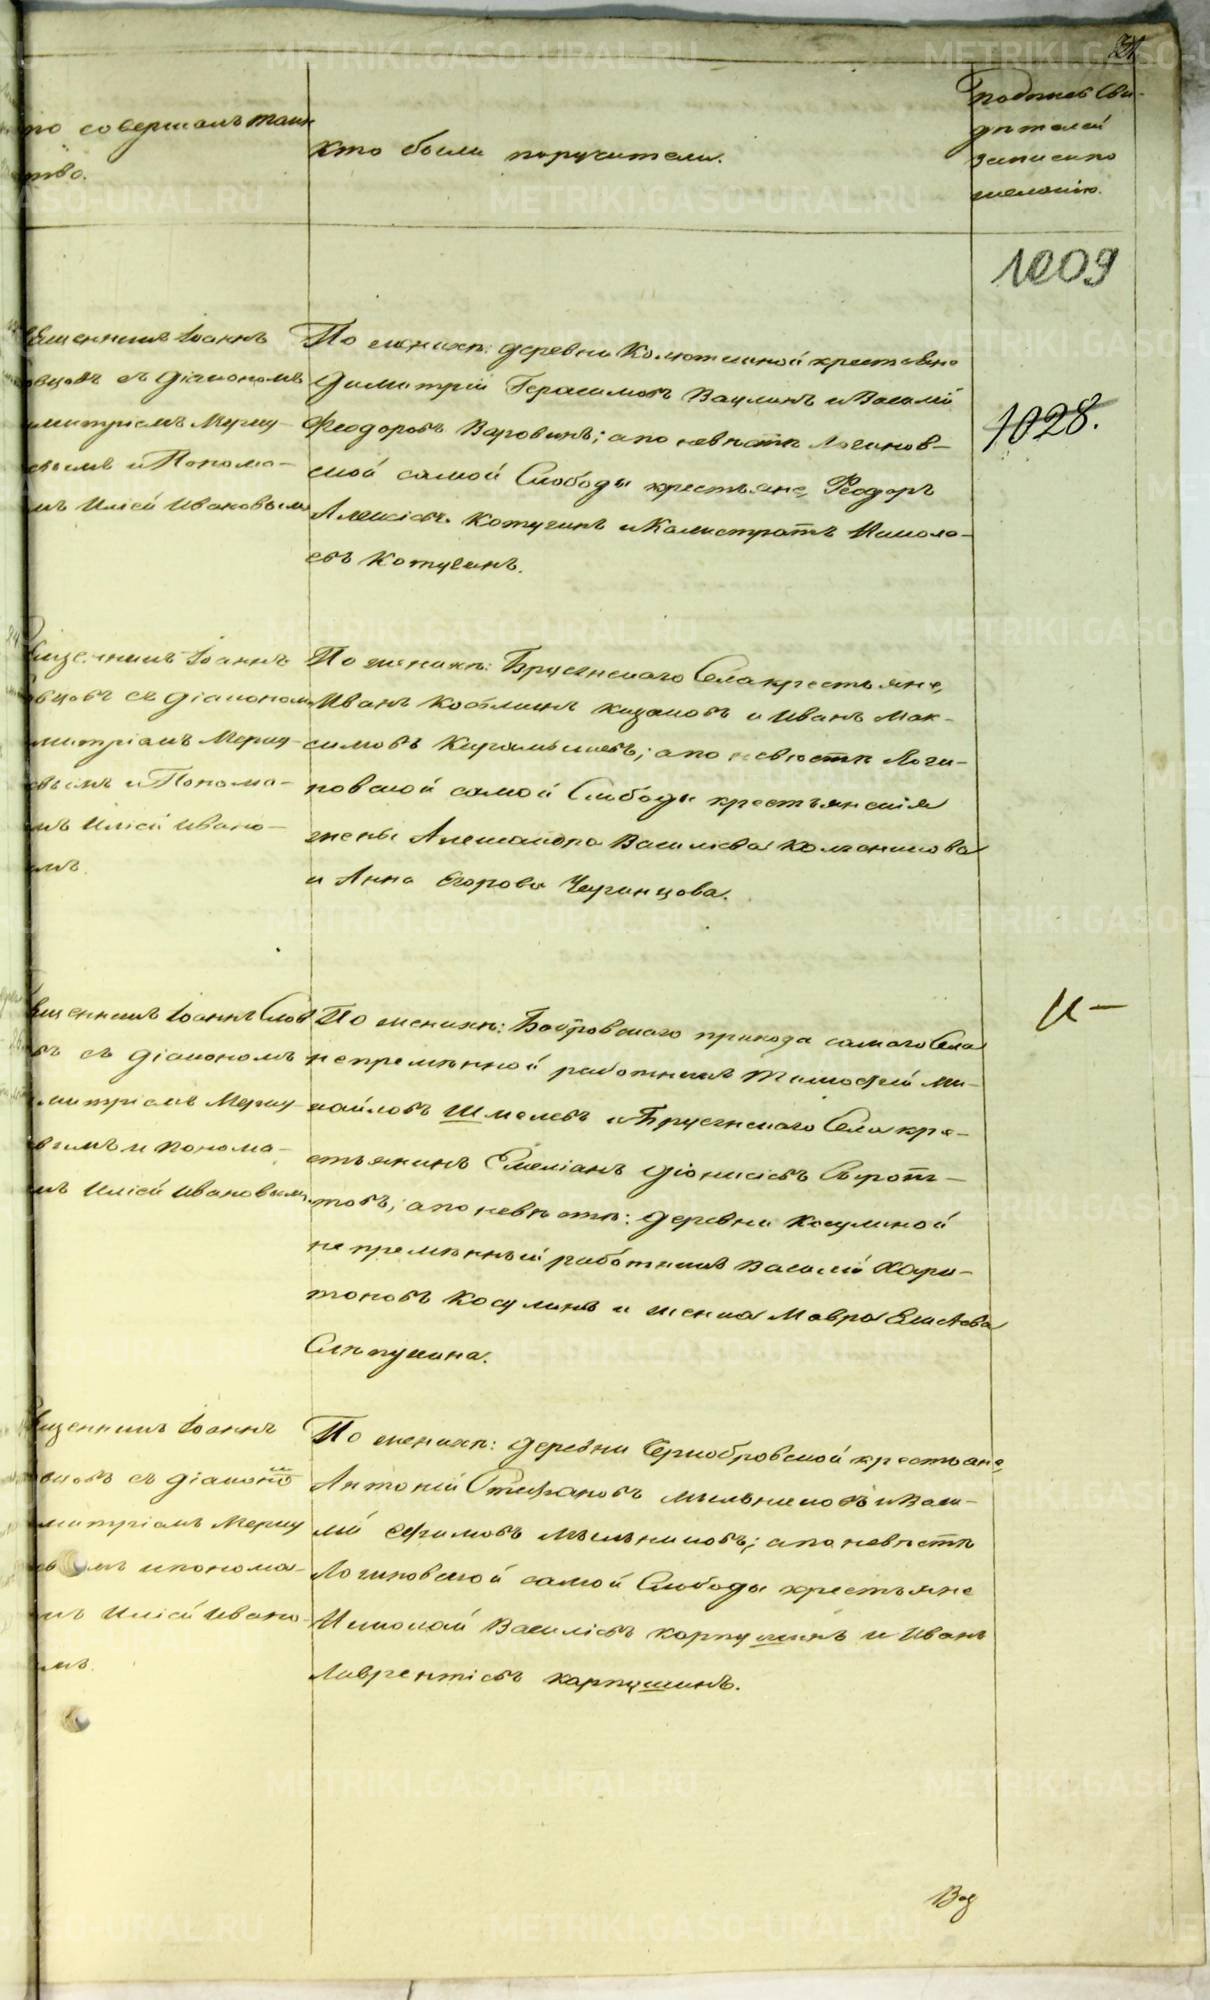 кто совершалъ таин
ство.
Кто были поручители.
Подпись сви-
дѣтелей
записи по
желанію.
1009
1028.
священникъ Іоаннъ
овцовъ съ діакономъ
митріемъ Мерку-
евымъ и Понома-
мъ Иліей Ивановымъ
По женихѣ: деревни Колюткиной крестьяне
Димитрій Герасимовъ Ваулинъ и Василій
Феодоровъ Варовинъ; а по невѣстѣ Логинов-
ской самой Слободы крестьяне, Феодоръ
Алексѣевъ Котугинъ и Калистратъ Никола-
евъ Котугинъ.
священникъ Іоаннъ
овцовъ съ діакономъ
митріемъ Мерку-
евымъ и Понома-
мъ Иліей Ивано-
мъ.
По женихѣ: Бруснскаго Села крестьяне,
Иванъ Казаковъ и Иванъ Мак-
симовъ; а по невѣстѣ Логи-
новской самой Слободы крестьянскія
жены Александра Васильева Колчанникова
и Анна Егорова Черинцова.
священникъ Іоаннъ Слов
въ съ діакономъ
митріемъ Мерку-
вымъ и понома-
мъ Иліей Ивановымъ.
По женихѣ: Бобровскаго прихода самаго Села
непремѣнной работникъ Тимофей Ми-
хайловъ Шмелевъ и Бруснскаго Села кре-
стьянинъ Емеліанъ Діонисіевъ Сырот-
товъ; а по невѣстѣ: деревни Косулиной
непремѣнный работникъ Василій Хари-
тоновъ Косулинъ и женка Мавра
Слѣпухина.
и-
священникъ Іоаннъ
вцовъ съ діакономъ
митріемъ Мерку
евымъ и понома-
мъ Иліей Ивано-
мъ.
По женихѣ: деревни Чернобровской крестьяне,
Антоній Стефановъ Мельниковъ и Васи-
лій Ефимовъ Мельниковъ; а по невѣстѣ
Логиновской самой Слободы крестьяне
Николай Васильевъ Карпушинъ и Иванъ
Лаврентіевъ Карпушинъ.
METRIKI.GASO-URAL.RU